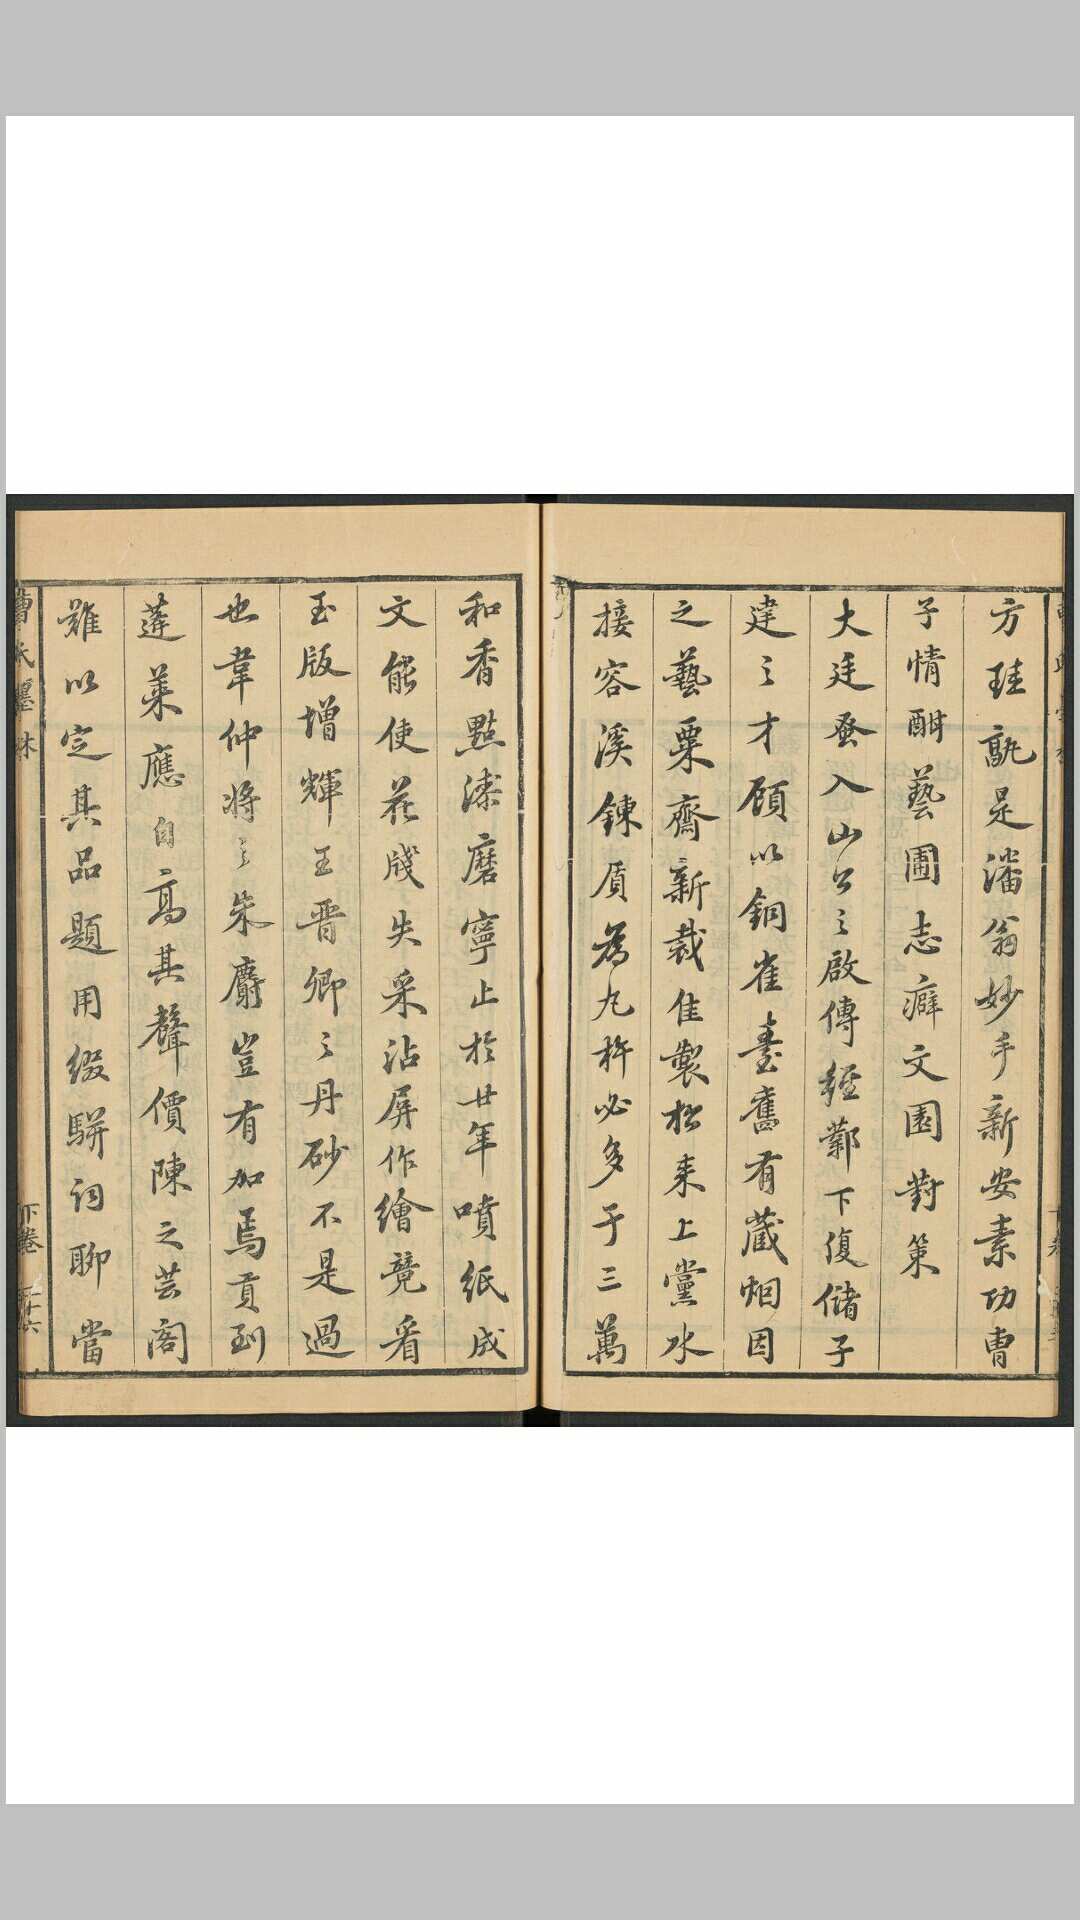 方珪孰是潘翁妙手新安素功曹
子情酣藝圃志癖文園對策
大廷蚤入山公之啟傳經鄴下復儲子
建之才顧以銅雀臺舊有藏烟因
之藝粟齋新裁佳製松来上黨水
接容溪鍊質為丸杵必多于三萬
和香點漆磨寧止於廿年噴紙成
文能使花牋失采沾屏作繪競看
玉版增輝王晋卿之丹砂不是過
也韋仲将之朱麝豈有加焉貢到
蓬萊應自高其聲價陳之芸閣
難以定其品題用綴駢词聊當
曹氏墨林
下卷
二十六